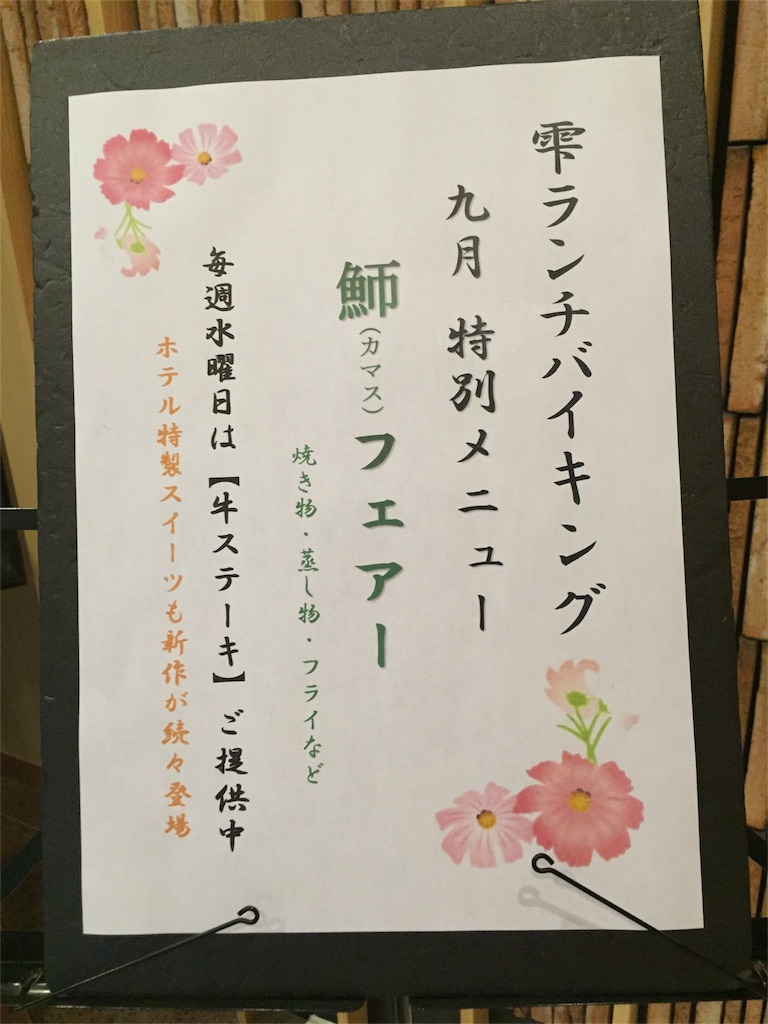 雫ランチバイキング
九月 特別メニュー
魳(カマス)フェアー
焼き物・蒸し物・フライなど
毎週水曜日は【牛ステーキ】ご提供中
ホテル特製スイーツも新作が続々登場